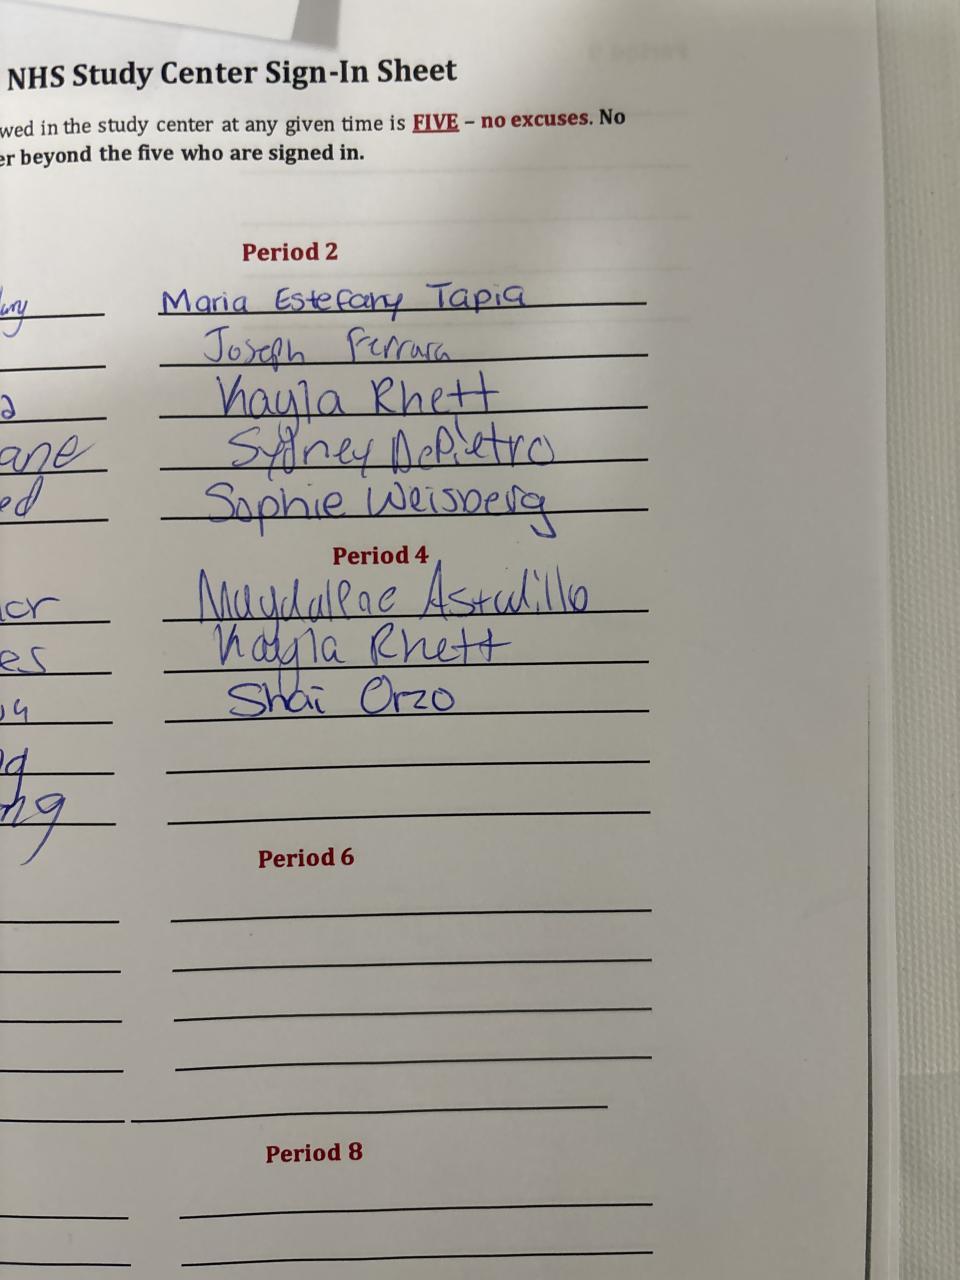 NHS Study Center Sign-In Sheet
wed in the study center at any given time is FIVE – no excuses. No
er beyond the five who are signed in.
Period 2
Maria Estefany Tapia
Joseph Ferrara
Kayla Rhett
a
Sydney DePietro
ane
Sophie Weisberg
ed
Period 4
Astudillo
Kayla Rhett
es
Shai Orzo
ng
Period 6
Period 8